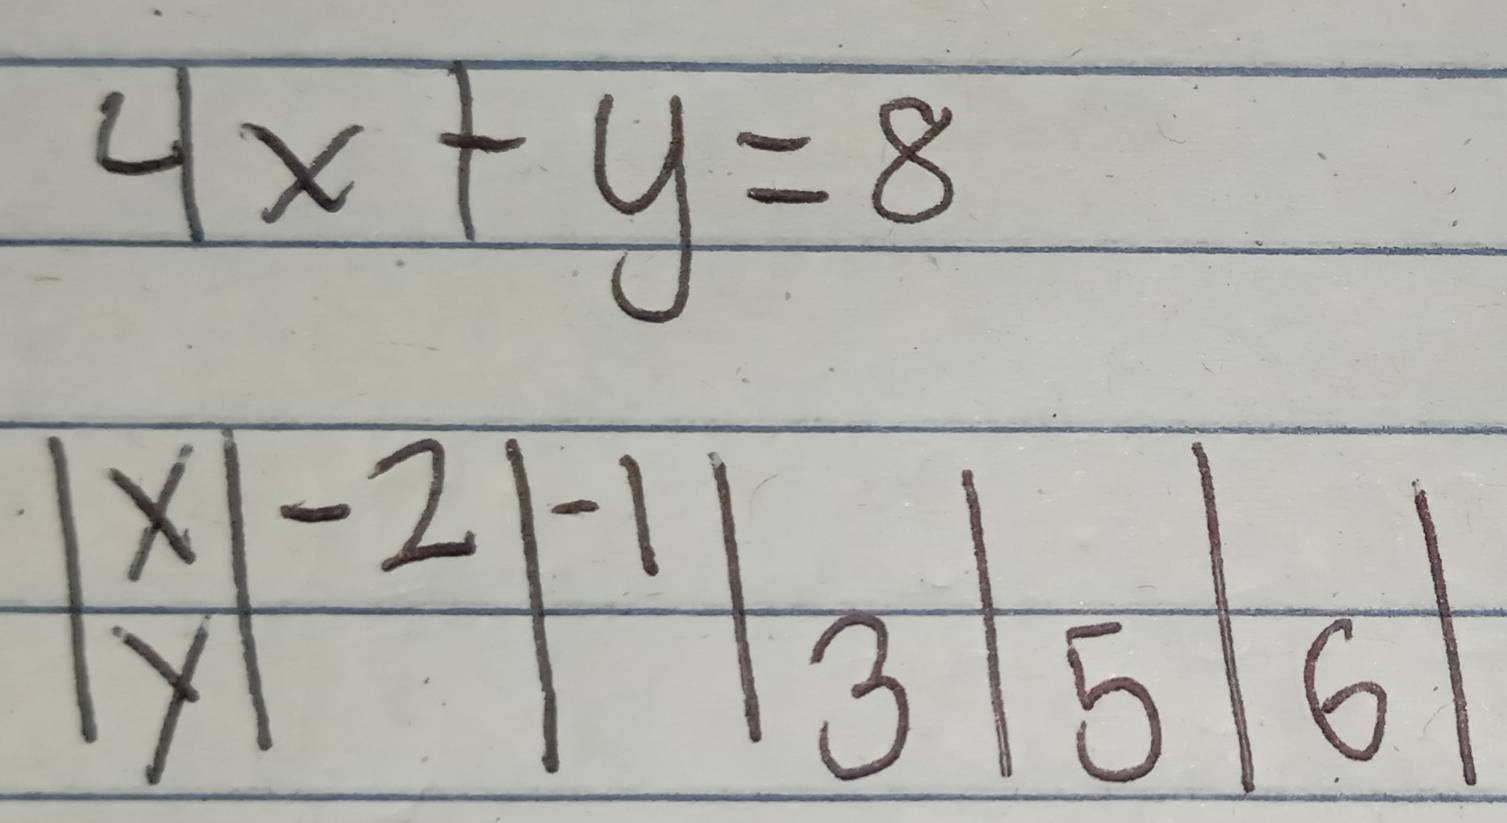 4x + y = 8
| x | -2 | -1 | | | |
| y | | | 3 | 5 | 6 |